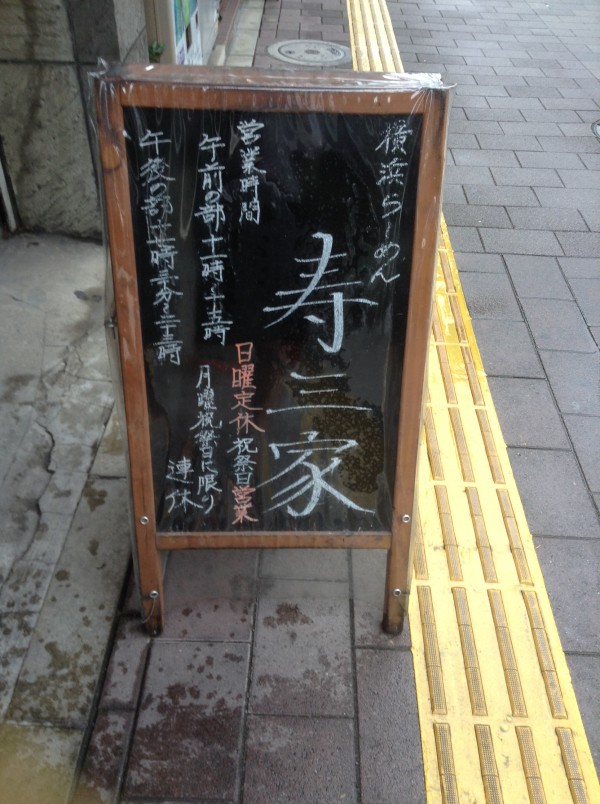 横浜らーめん
寿三家
営業時間
午前の部十一時〜十五時
午後の部十七時三十分〜二十三時
日曜定休 祝祭日営業
月曜祝祭日に限り
連休